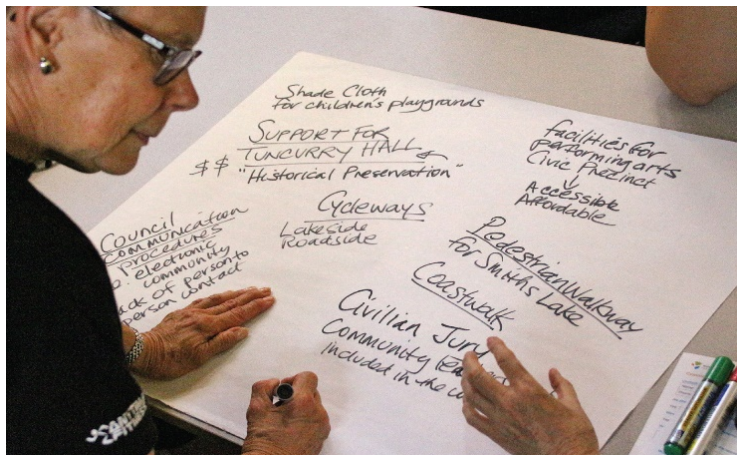 Shade Cloth
for children's playgrounds
SUPPORT FOR
TUNCURRY HALL &
$$ "Historical Preservation"
facilities for
performing arts
Civic Precinct
Accessible
Affordable
Cycleways
Lakeside
Roadside
Council
Communication
procedures
electronic
community
of person to
person contact
Pedestrian Walkway
for Smiths Lake
Coastwalk
Civilian Jury
Community
included in the